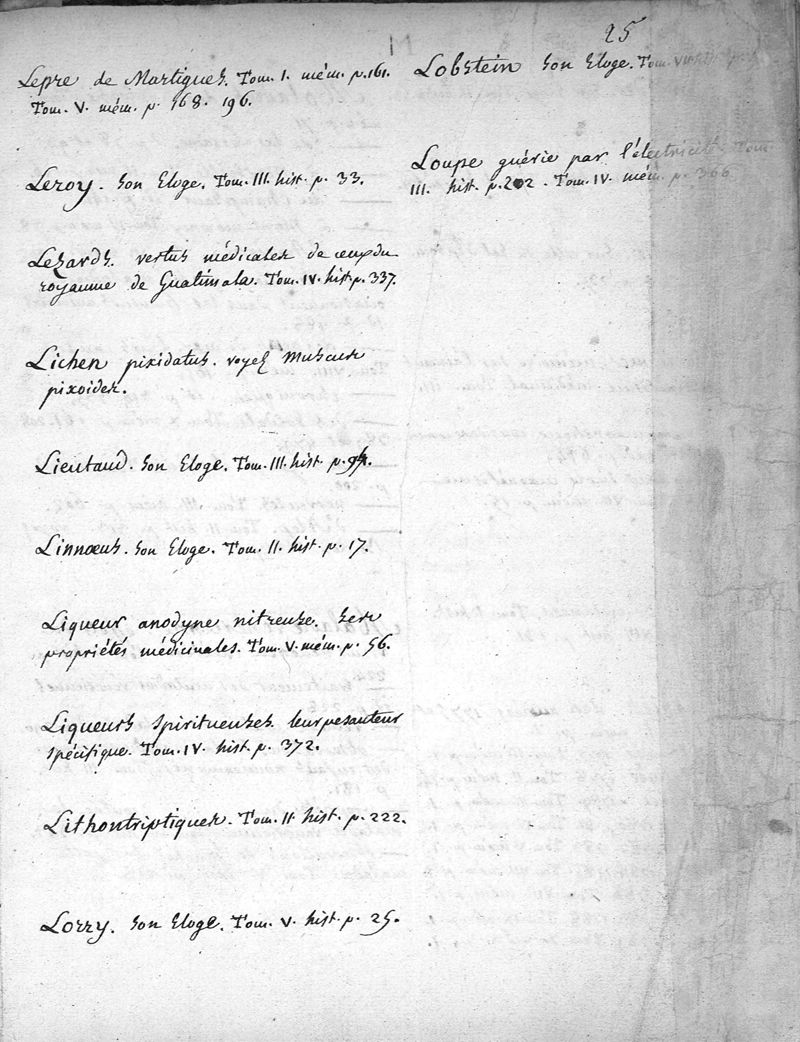 25
Lepre de Martigues. Tom. I. mém. p. 161.
Tom. V. mém. p. 168. 196.
Leroy. Son Eloge. Tom. III. hist. p. 33.
Lezards. vertus médicales de ceux du
royaume de Guatimala. Tom. IV. hist. p. 337.
Lichen pixidatus. voyez Muscus
pixoides.
Lieutaud. Son Eloge. Tom. III. hist. p. 94.
Linnœus. Son Eloge. Tom. II. hist. p. 17.
Liqueur anodyne nitreuse. Ses
propriétés médicinales. Tom. V. mém. p. 56.
Liqueurs spiritueuses. leur pesanteur
spécifique. Tom. IV. hist. p. 372.
Lithontriptiques. Tom. II. hist. p. 222.
Lorry. Son Eloge. Tom. V. hist. p. 25.
Lobstein Son Eloge. Tom.
Loupe guérie par l'électricité Tom
III. hist. p. 202. Tom. IV. mém. p. 366